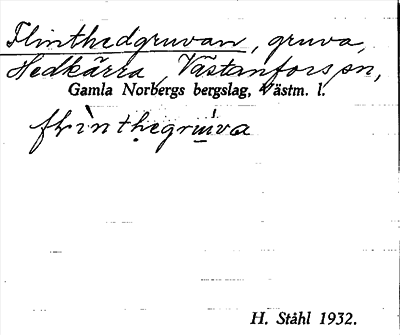 Flinthedgruvan, gruva,
Hedkärra, Västanfors sn,
Gamla Norbergs bergslag, Västm. l.
flìnthegrúva
H. Ståhl 1932.